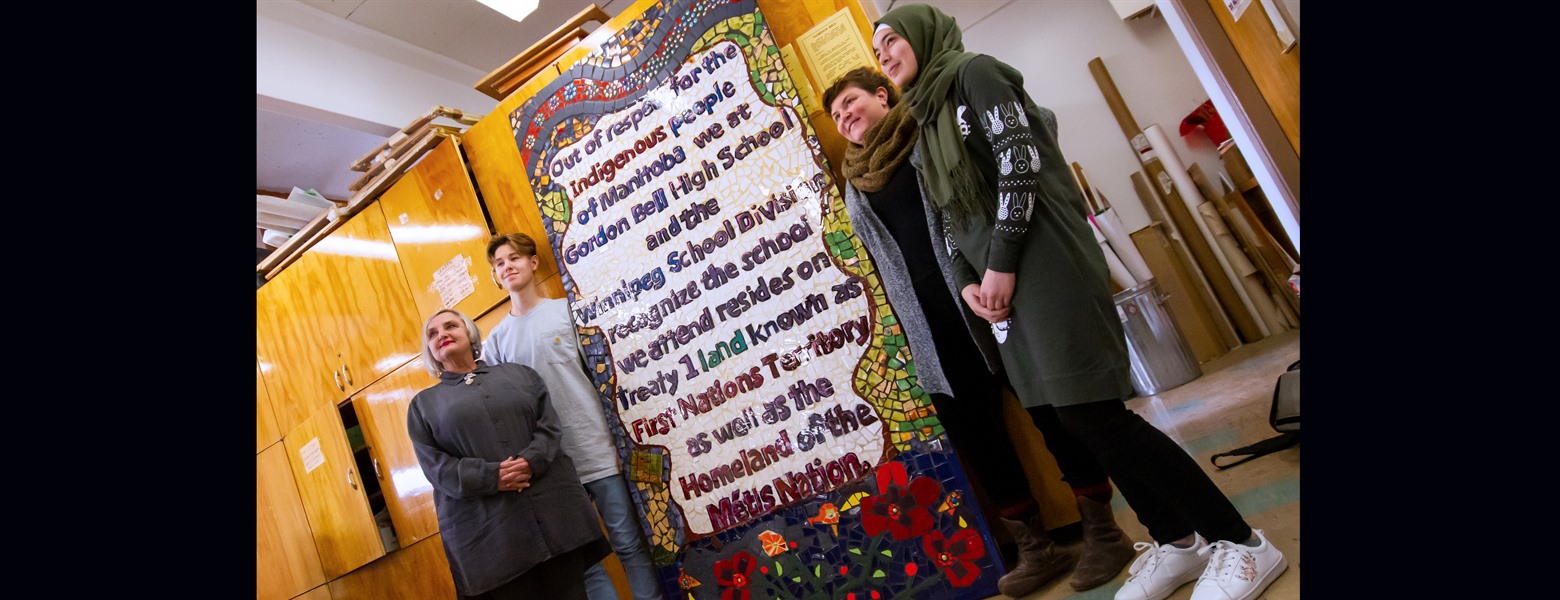 Out of respect for the
Indigenous people
of Manitoba we at
Gordon Bell High School
and the
Winnipeg School Division
recognize the school
we attend resides on
treaty 1 land known as
First Nations Territory
as well as the
Homeland of the
Métis Nation.